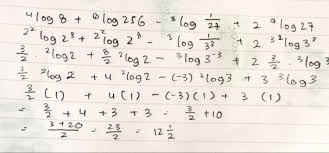 ⁴log 8 + ⁴log 256 - ³log 1/27 + 2 ⁹log 27
2²log 2³ + 2²log 2⁸ - ³log 1/3³ + 2 3²log 3³
3/2 · ²log 2 + 8/2 ²log 2 - ³log 3⁻³ + 2 3/2 · ³log 3
3/2 ²log 2 + 4 ²log 2 - (-3) ³log 3 + 3 ³log 3
3/2 (1) + 4(1) - (-3)(1) + 3 (1)
= 3/2 + 4 + 3 + 3 = 3/2 + 10
= 3 + 20 / 2 = 23/2 = 12 1/2